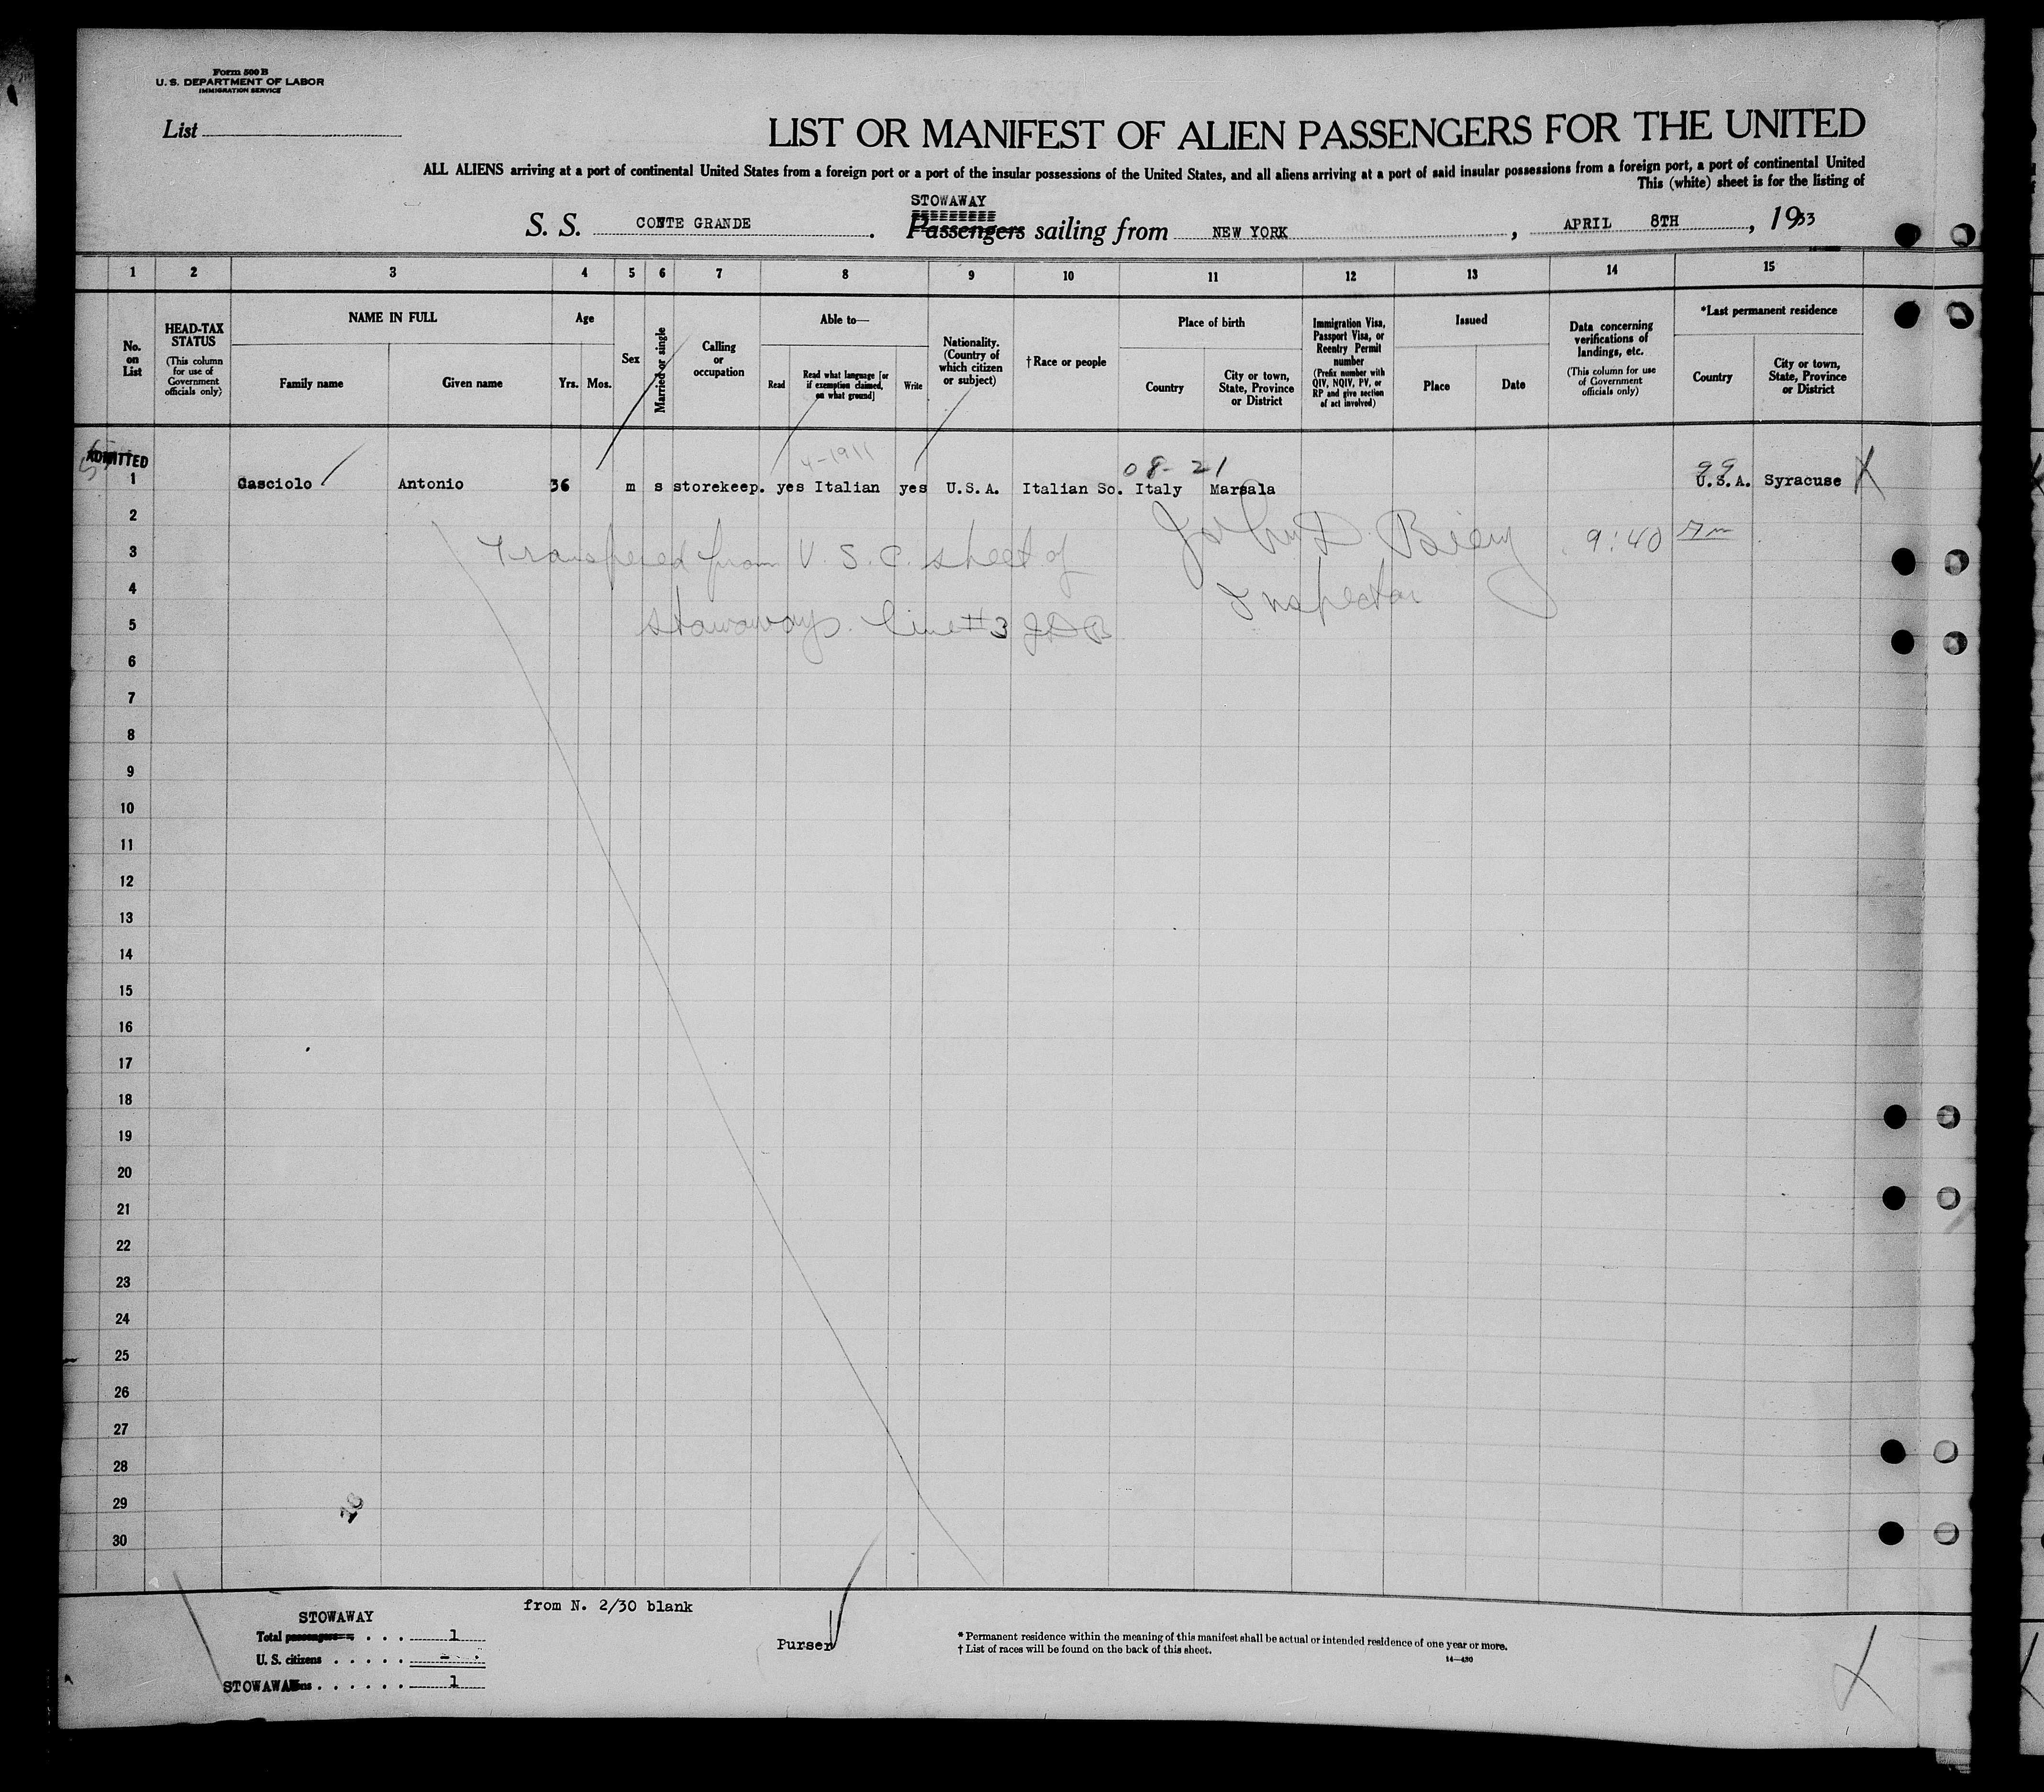 Form 500 B
U. S. DEPARTMENT OF LABOR
IMMIGRATION SERVICE
List
LIST OR MANIFEST OF ALIEN PASSENGERS FOR THE UNITED
ALL ALIENS arriving at a port of continental United States from a foreign port or a port of the insular possessions of the United States, and all aliens arriving at a port of said insular possessions from a foreign port, a port of continental United
This (white) sheet is for the listing of
STOWAWAY
S. S. CONTE GRANDE. Passengers sailing from NEW YORK, APRIL 8TH, 1933
1 2 3 4 5 6 7 8 9 10 11 12 13 14 15
No. on List
HEAD-TAX STATUS (This column for use of Government officials only)
NAME IN FULL
Family name
Given name
Age
Yrs. Mos.
Sex
Married or single
Calling or occupation
Able to—
Read
Read what language [or if exemption claimed, on what ground]
Write
Nationality. (Country of which citizen or subject)
† Race or people
Place of birth
Country
City or town, State, Province or District
Immigration Visa, Passport Visa, or Reentry Permit number (Prefix number with QIV, NQIV, PV, or RP and give section of act involved)
Issued
Place
Date
Data concerning verifications of landings, etc. (This column for use of Government officials only)
*Last permanent residence
Country
City or town, State, Province or District
ADMITTED
4-1911 08-21 99
1 Gasciolo Antonio 36 m s storekeep. yes Italian yes U.S.A. Italian So. Italy Marsala U.S.A. Syracuse X
2
3 Transfered from U. S. C. sheet of John D. 9:40
4 Inspector
5 stowaways. Line #3 JDB
6
7
8
9
10
11
12
13
14
15
16
17
18
19
20
21
22
23
24
25
26
27
28
29
30
from N. 2/30 blank
STOWAWAY
Total passengers 1
U. S. citizens -
STOWAWAY 1
Purser
* Permanent residence within the meaning of this manifest shall be actual or intended residence of one year or more.
† List of races will be found on the back of this sheet.
14—430
X